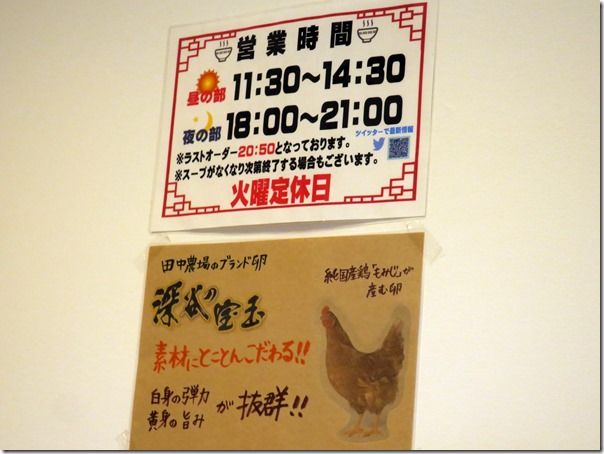 営業時間
昼の部 11:30～14:30
夜の部 18:00～21:00
ツイッターで最新情報
※ラストオーダー20:50となっております。
※スープがなくなり次第終了する場合もございます。
火曜定休日
田中農場のブランド卵
深谷の宝玉
純国産鶏「もみじ」が
産む卵
素材にとことんこだわる!!
白身の弾力
黄身の旨み
が抜群!!